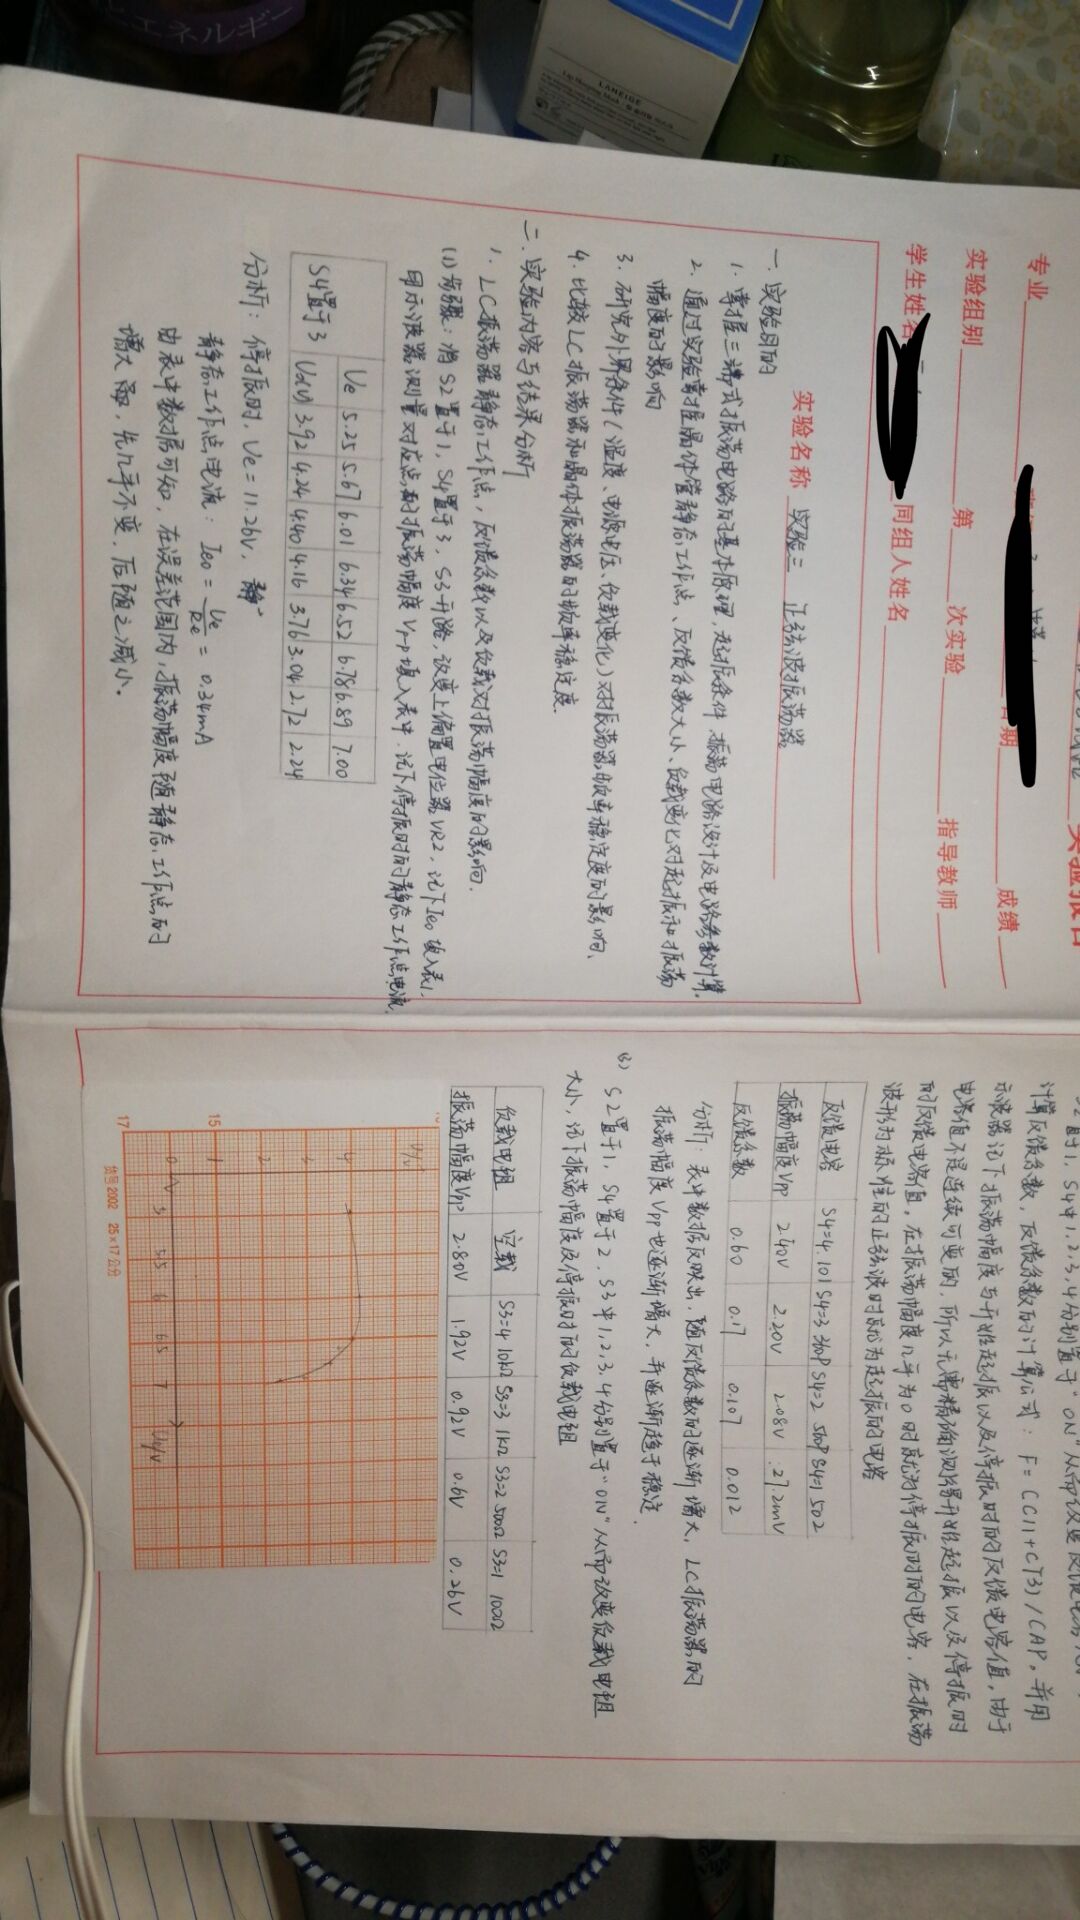 エネルギー
LANEIGE
Lip Sleeping Mask
实验报告
专业
日期
成绩
实验组别
第
次实验
指导教师
学生姓名
同组人姓名
实验名称 实验三 正弦波振荡器
一.实验目的
1. 掌握三端式振荡电路的基本原理,起振条件,振荡电路设计及电路参数计算.
2. 通过实验掌握晶体管静态工作点、反馈系数大小、负载变化对起振和振荡
幅度的影响
3. 研究外界条件(温度、电源电压、负载变化)对振荡器频率稳定度的影响.
4. 比较LC振荡器和晶体振荡器的频率稳定度.
二.实验内容与结果分析
1. LC振荡器静态工作点,反馈系数以及负载对振荡幅度的影响.
(1)步骤:将S2置于1,S4置于3,S3开路,改变上偏置电位器VR2,记下Ieo填入表1.
用示波器测量对应点的振荡幅度Vp-p填入表中.记下停振时的静态工作点电流.
S4置于3
Ve 5.25 5.67 6.01 6.34 6.52 6.78 6.89 7.00
3.92 4.24 4.40 4.16 3.76 3.04 2.72 2.24
分析:停振时,Ve=11.26V,
静态工作点电流:Ieo=Ve/Re=0.34mA
由表中数据可知,在误差范围内,振荡幅度随静态工作点的
增大而,先几乎不变,后随之减小.
S2置于1,S4中1,2,3,4分别置于"ON"从而改变反馈电容
计算反馈系数,反馈系数的计算公式:F=CC11+CT3)/CAP,并用
示波器记下振荡幅度与开始起振以及停振时的反馈电容值,由于
电容值不是连续可变的,所以无需精确测得开始起振以及停振时
的反馈电容值,在振荡幅度几乎为0时就为停振时的电容,在振荡
波形为标准的正弦波时就为起振的电容
反馈电容 S4=4.101 S4=3 S4=2 S4=1 502
振荡幅度Vpp 2.40V 2.20V 2.08V 272mV
反馈系数 0.60 0.17 0.107 0.012
分析:表中数据反映出,随反馈系数的逐渐增大,LC振荡器的
振荡幅度Vpp也逐渐增大,并逐渐趋于稳定.
(3) S2置于1,S4置于2,S3中1,2,3,4分别置于"ON"从而改变负载电阻
大小,记下振荡幅度及停振时的负载电阻
负载电阻 空载 S3=4 10kΩ S3=3 1kΩ S3=2 500Ω S3=1 100Ω
振荡幅度Vpp 2.80V 1.92V 0.92V 0.6V 0.26V
4
2
1
0
5
5.5
6
6.5
7
15
17
货号2002 25×17公分